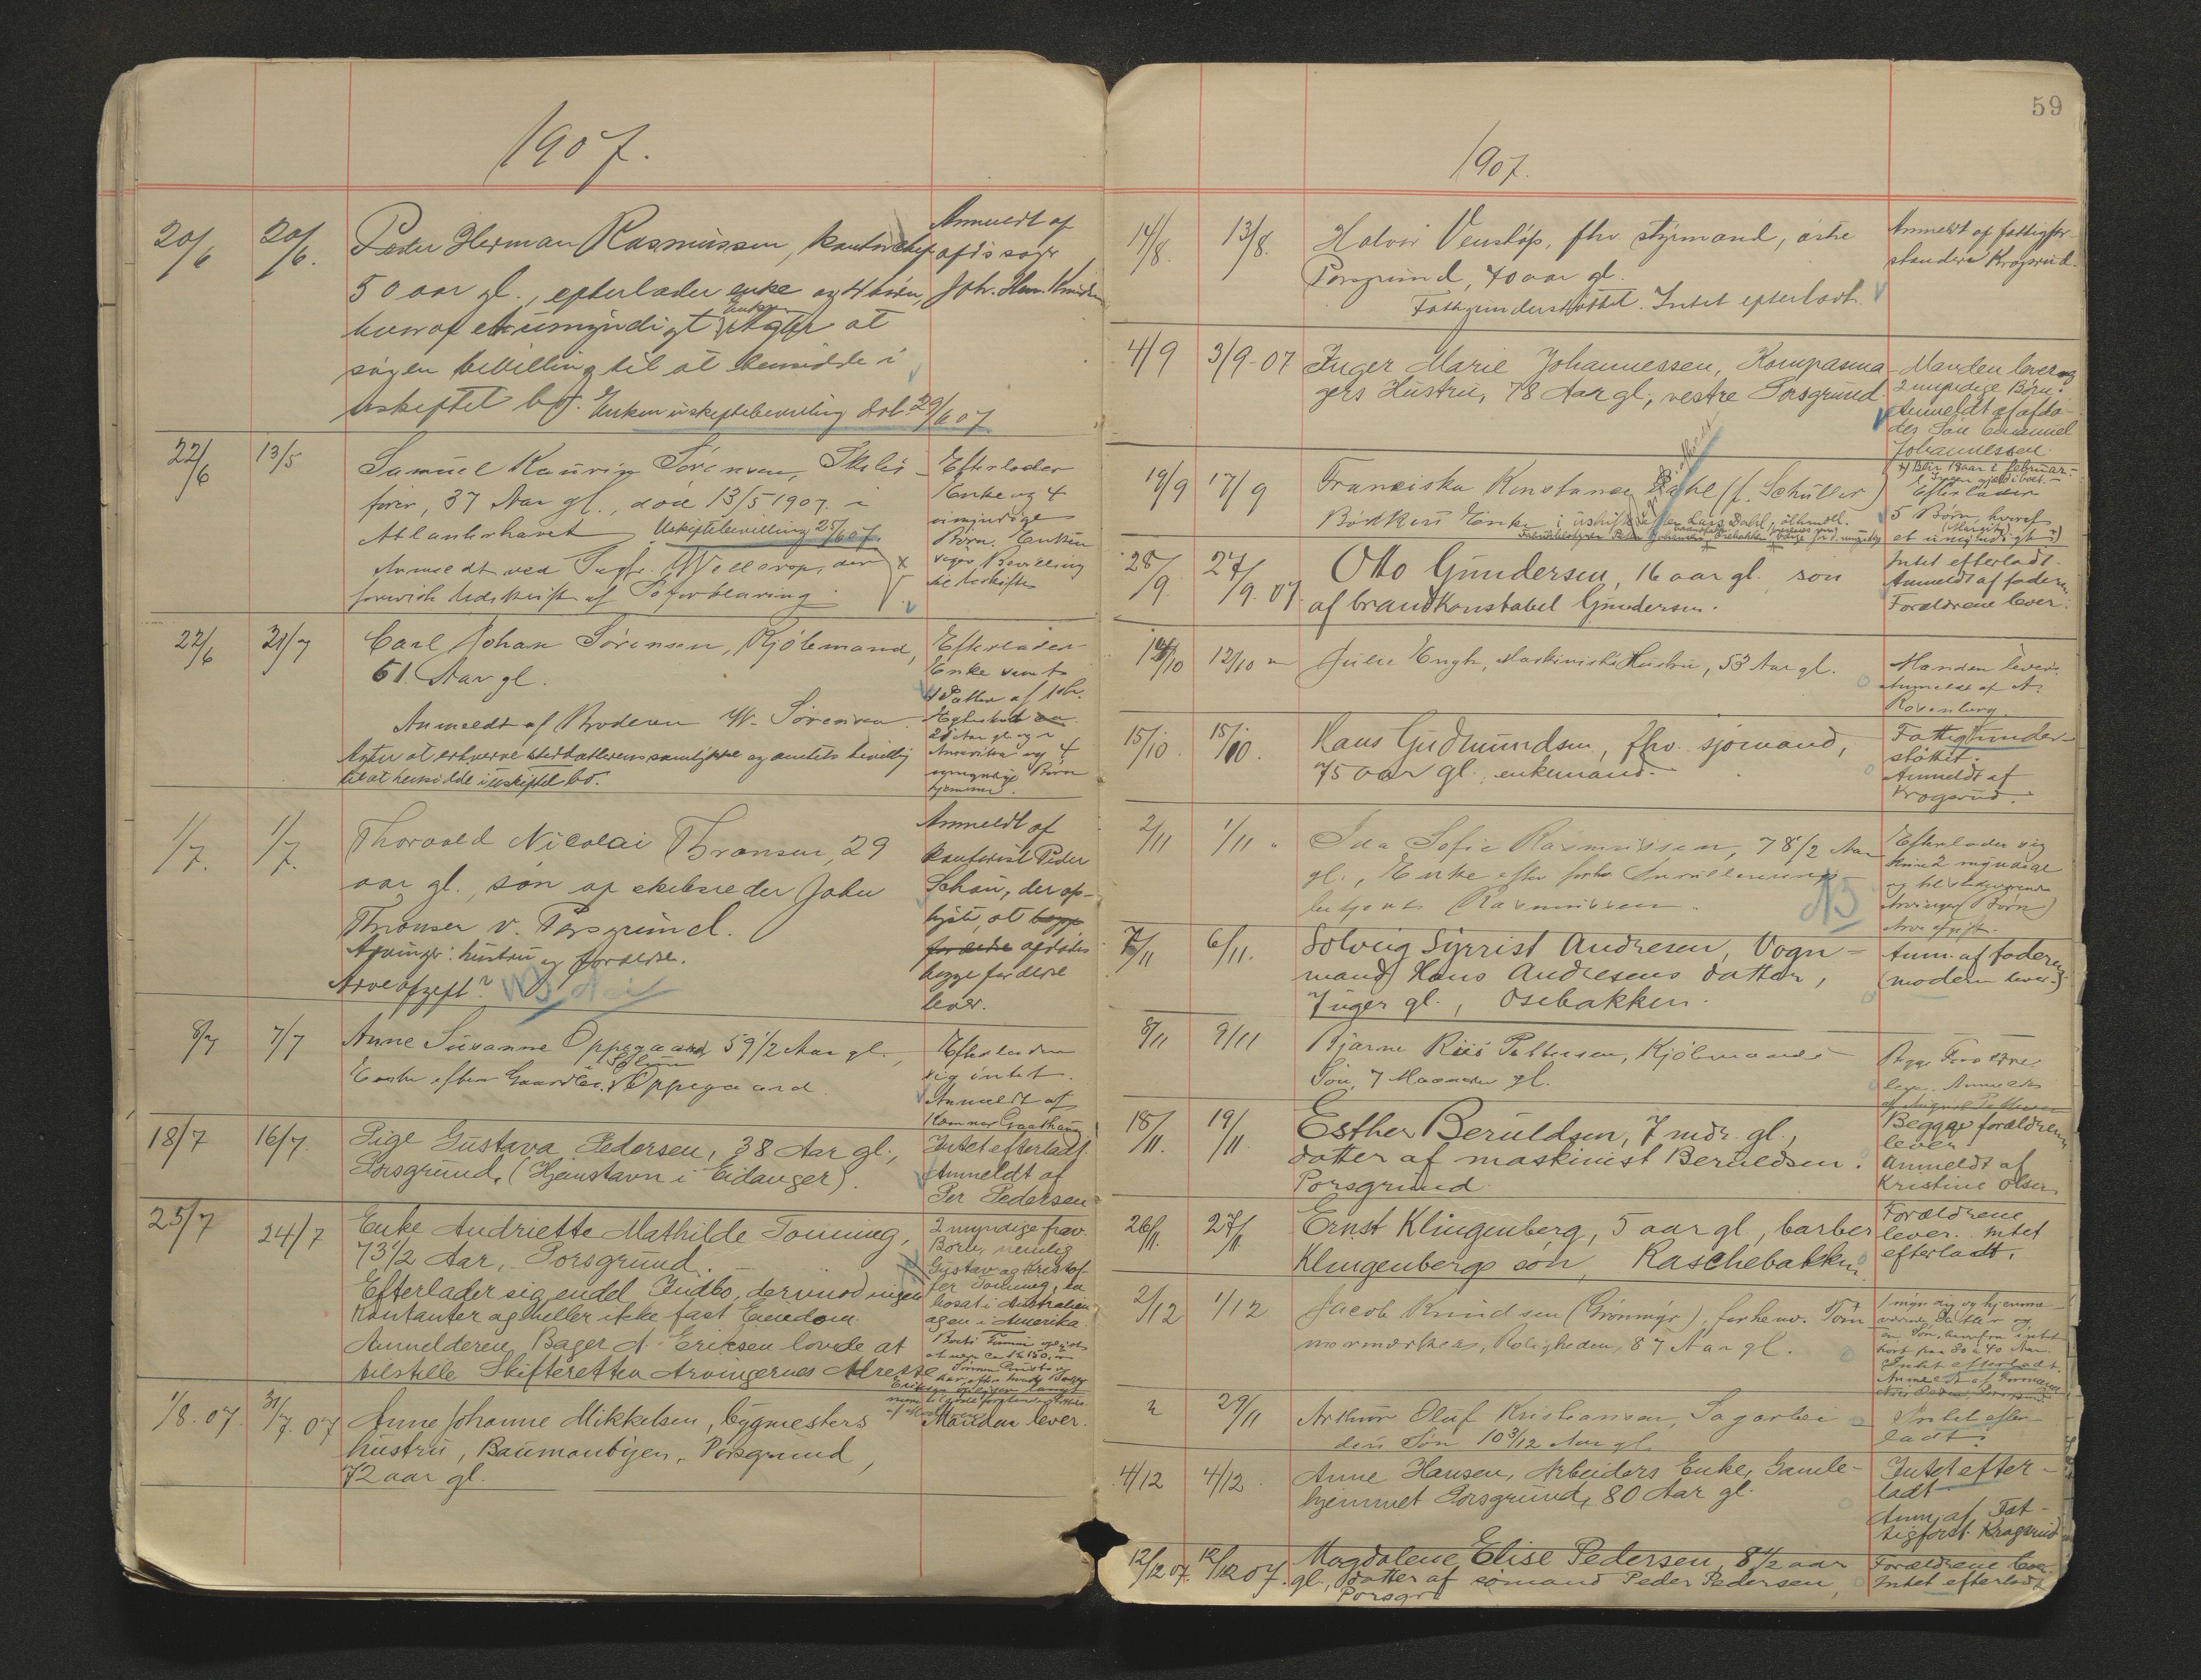 1907.
20/6 20/6. Peder Herman Rasmussen, kontorchef
50 aar gl., efterlader enke og 4 børn,
hvoraf et umyndigt. Enken agter at
søgen bevilling til at hensidde i
uskiftet bo. Enken uskiftebevilling dat. 29/6 07
Anmeldt af
afds søgr
Joh. Hm.
22/6 13/5 Samuel Kaurin Sørensen, Skibs-
fører, 37 Aar gl., død 13/5 1907 i
Atlanterhavet Uskiftebevilling 25/6 07.
Anmeldt ved Sagfr. Wellerop, der
Udskrift af Søforklaring.
Efterlader
Enke og 4
umyndige
Børn. Enken
søger Bevilling
til Uskifte
22/6 21/7 Carl Johan Sørensen, Kjøbmand,
61 Aar gl.
Anmeldt af Broderen W. Sørensen.
Agter at erhverve steddatterens samtykke og amtets bevilling
til at hensidde i uskiftet bo.
Efterlader
Enke samt
1 Datter af 1ste
Ægteskab
28 Aar gl. og i
Amerika og 4
umyndige Børn
hjemme.
1/7. 1/7. Thorvald Nicolai Thronsen, 29
aar gl., søn af skibsreder John
Thronsen v. Porsgrund.
Arvinger: hustru og forældre.
Arveafgift?
Anmeldt af
kontorist Peder
Schau, der op-
lyste, at begge
forældre afdødes
begge forældre
lever.
8/7 7/7 Anne Susanne Oppegaard 59 1/2 Aar gl.,
Enke efter Gaardbr. Oppegaard
i Solum
Efterlader
sig intet.
Anmeldt af
18/7 16/7. Pige Gustava Pedersen, 38 Aar gl.,
Porsgrund, (Hjemstavn i Eidanger).
Intet efterladt.
Anmeldt af
Per Pedersen
25/7 24/7 Enke Andriette Mathilde Tonning,
73 1/2 Aar, Porsgrund.
Efterlader sig endel Indbo, derimod ingen
Kontanter og heller ikke fast Eiendom.
Anmelderen Bager A. Eriksen lovede at
tilstille Skifteretten Arvingernes Adresse
2 myndige frav.
Børn, nemlig
Gustav og Kristof-
fer Tonning, en
bosat i Australien
og en i Amerika.
1/8. 07. 31/7. 07 Anne Johanne Mikkelsen, bygmesters
hustru, Baumanbyen, Porsgrund,
72 aar gl.
Manden lever.
59
1907.
14/8. 13/8. Halvor Venstøp, fhv. styrmand, østre
Porsgrund, 40 aar gl.
Fattigunderstøttet. Intet efterladt.
Anmeldt af fattigfor-
standere Krogsrud.
4/9 3/9-07 Inger Marie Johannessen, Kompasma-
gers Hustru, 78 Aar gl., vestre Porsgrund.
Manden lever og
2 myndige Børn.
Anmeldt af afdø-
des Søn Emanuel
Johannessen.
19/9 17/9 Franciska Konstance Dahl (f. Schüller)
Bødkeri Enke i uskifte efter Lars Dahl, ølhandl.
x) Blir 18 aar i februar.
Ingen gjæld i boet.
Efterlader
5 Børn, hvoraf
(Margit)
et umyndigt x)
28/9. 27/9. 07. Otto Gundersen, 16 aar gl. søn
af brandkonstabel Gundersen.
Intet efterladt.
Anmeldt af faderen
Forældrene lever.
14/10 12/10 Julie Engh, Maskinists Hustru, 53 Aar gl.
Manden lever.
Anmeldt af A.
Rosenberg
15/10. 15/10. Hans Gudmundsen, fhv. sjømand,
75 aar gl., enkemand.
Fattigunder-
støttet.
Anmeldt af
Krogsrud.
2/11 1/11 Ina Sofie Rasmussen, 78 1/2 Aar
gl., Enke efter forhv. Inrulleringsbetjent
Rasmussen.
Efterlader sig
kun 2 myndige
og tilstedeværende
Arvinger (Børn)
Arve afgift.
7/11 6/11. Solveig Sigrist Andresen, Vogn-
mand Hans Andresens datter,
7 uger gl., Osebakken.
Anm. af faderen
(moderen lever.)
8/11 9/11 Bjarne Riis Pettersen, Kjøbmands
Søn, 7 Maaneder gl.
Begge Forældre
lever. Anmeldt
af August Pettersen
18/11. 19/11 Esther Beruldsen, 7 mdr. gl.,
datter af maskinist Beruldsen.
Porsgrund
Begge forældrene
lever
Anmeldt af
Kristine Olsen
26/11. 27/11. Ernst Klingenberg, 5 aar gl, barber
Klingenbergs søn, Raschebakken
Forældrene
lever. intet
efterladt.
2/12 1/12 Jacob Knudsen (Grønmyr), forhenv. Tøm-
mermærker, Roligheden, 87 Aar gl.
1 myndig og hjemme-
værende Datter og
en Søn, hvorfra intet
hørt paa 30 à 40 Aar.
Intet efterladt.
" 29/11 Arthur Oluf Kristiansen, Sagarbei-
ders Søn 10 3/12 Aar gl.
Intet efter-
ladt.
4/12 4/12. Anne Hansen, Arbeiders Enke, Gamle-
hjemmet Porsgrund, 80 Aar gl.
Intet efter-
ladt
Anm. af Fat-
tigforst. Krogsrud
12/12 07. 12/12 07. Magdalene Elise Pedersen, 8 1/2 aar
gl., datter af sømand Peder Pedersen,
Porsgr.
Forældrene lever.
Intet efterladt